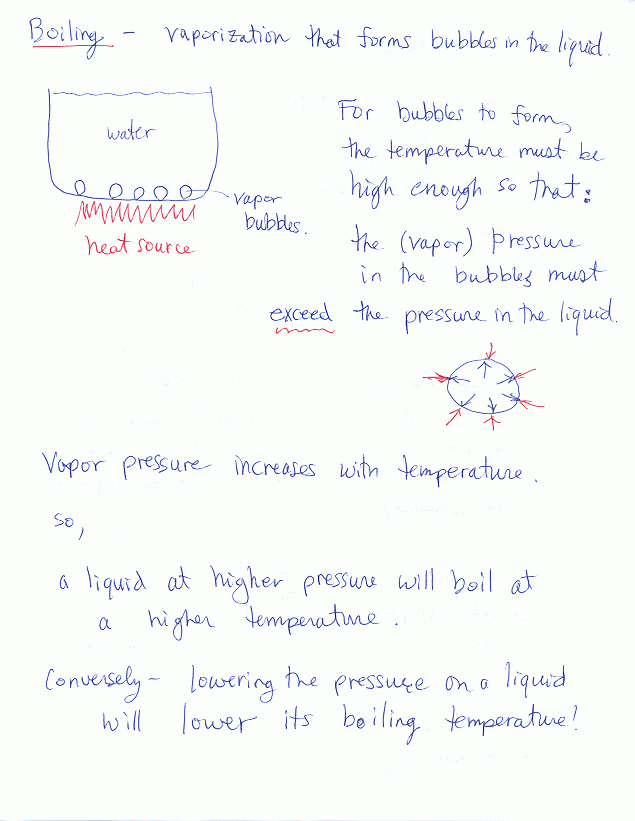 Boiling - vaporization that forms bubbles in the liquid.
water
vapor
bubbles.
heat source
For bubbles to form,
the temperature must be
high enough so that:
the (vapor) pressure
in the bubbles must
exceed the pressure in the liquid.
Vapor pressure increases with temperature.
so,
a liquid at higher pressure will boil at
a higher temperature.
Conversely - lowering the pressure on a liquid
will lower its boiling temperature!